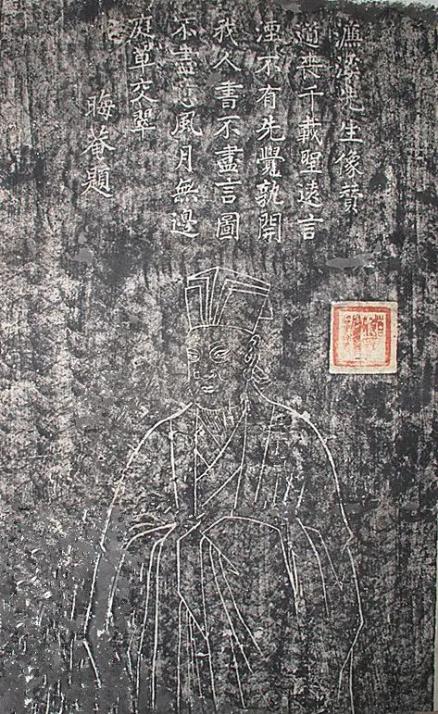 濂溪先生像贊
道喪千載聖遠言
湮不有先覺孰開
我人書不盡言圖
不盡意風月無邊
庭草交翠
晦菴題